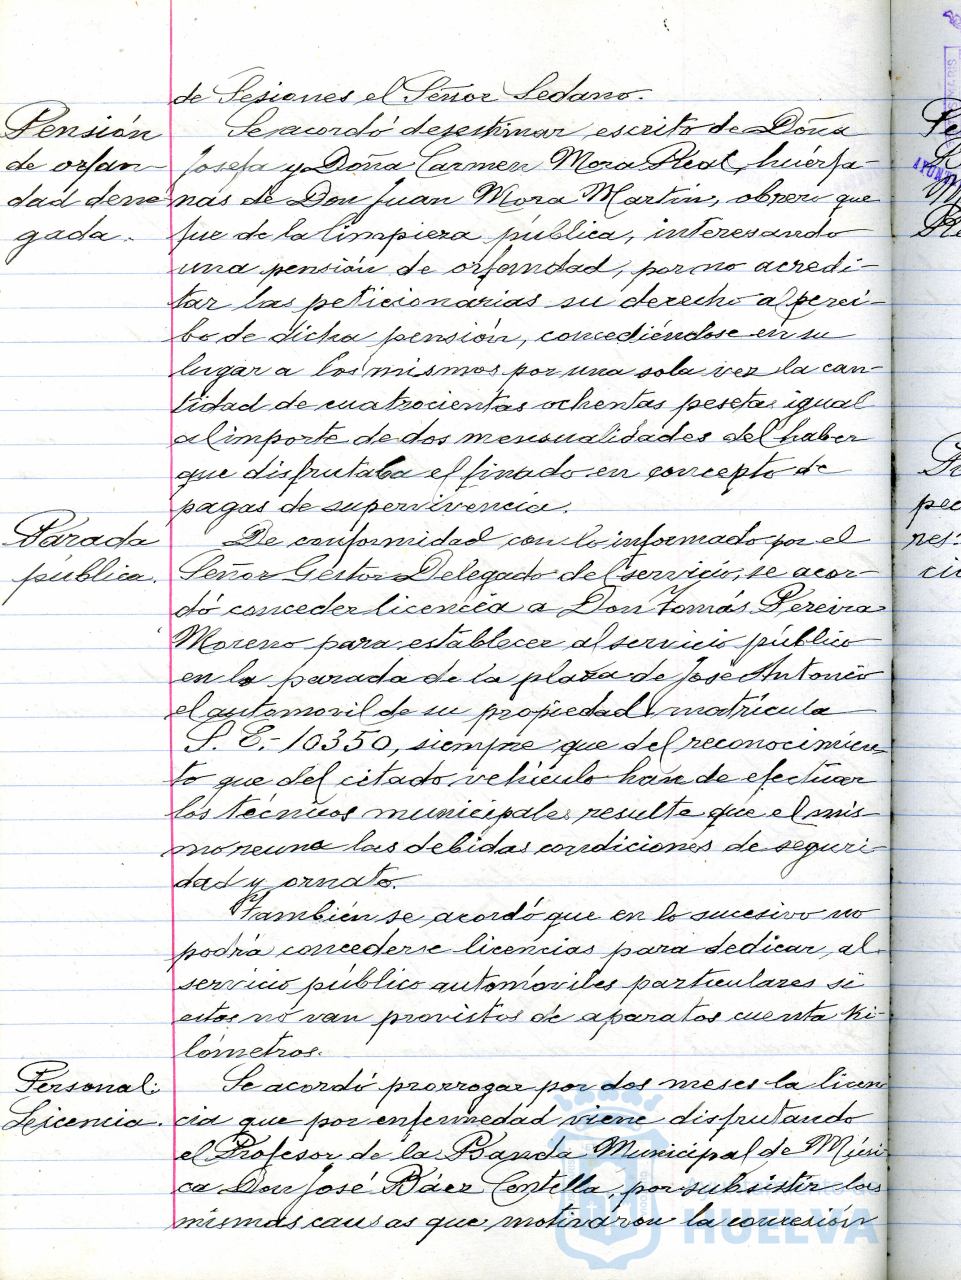 de Sesiones el Señor Sedano.
Pensión
de orfan-
dad dene-
gada.
Se acordó desestimar, escrito de Doña
Josefa y Doña Carmen Mora Real, huérfa-
nas de Don Juan Mora Martín, obrero que
fue de la limpieza pública, interesando
una pensión de orfandad, por no acredi-
tar las peticionarias su derecho al perci-
bo de dicha pensión, concediéndose en su
lugar a los mismos por una sola vez la can-
tidad de cuatrocientas ochentas pesetas igual
al importe de dos mensualidades del haber
que disfrutaba el finado en concepto de
pagas de supervivencia.
Parada
pública.
De conformidad con lo informado por el
Señor Gestor Delegado del servicio, se acor-
dó conceder licencia a Don Tomás Pereira
Moreno para establecer al servicio público
en la parada de la plaza de José Antonio
el automovil de su propiedad matrícula
S.E.-10350, siempre que del reconocimien-
to que del citado vehículo han de efectuar
los técnicos municipales resulte que el mis-
mo reuna las debidas condiciones de seguri-
dad y ornato.
También se acordó que en lo sucesivo no
podrá concederse licencias para dedicar, al
servicio público automóviles particulares si
estos no van provistos de aparatos cuenta ki-
lómetros.
Personal:
Licencia.
Se acordó prorrogar por dos meses la licen-
cia que por enfermedad viene disfrutando
el Profesor de la Banda Municipal de Músi-
ca Don José Báez Centella, por subsistir las
mismas causas que motivaron la concesión
HUELVA